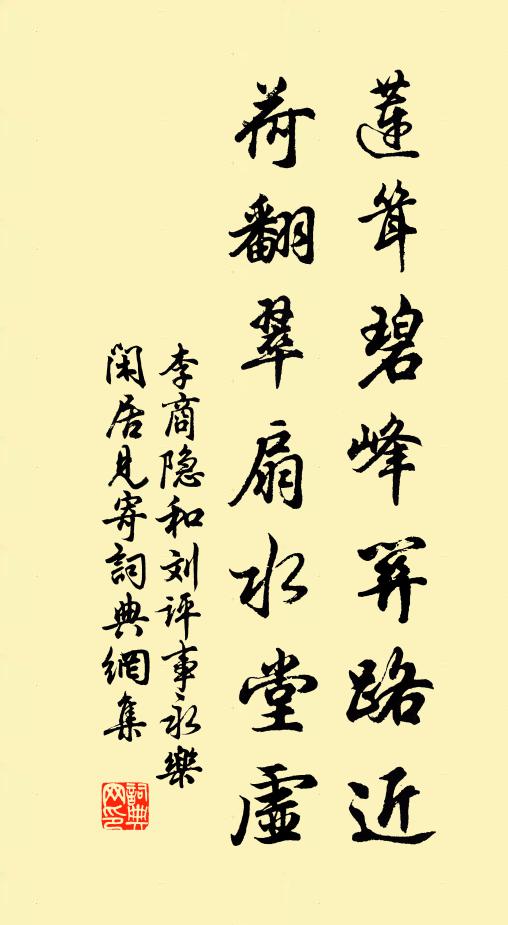 蓮耸碧峰关路近
荷翻翠扇水堂虚
李商隐和刘评事永樂
闲居见寄詞典網集
詞典网印